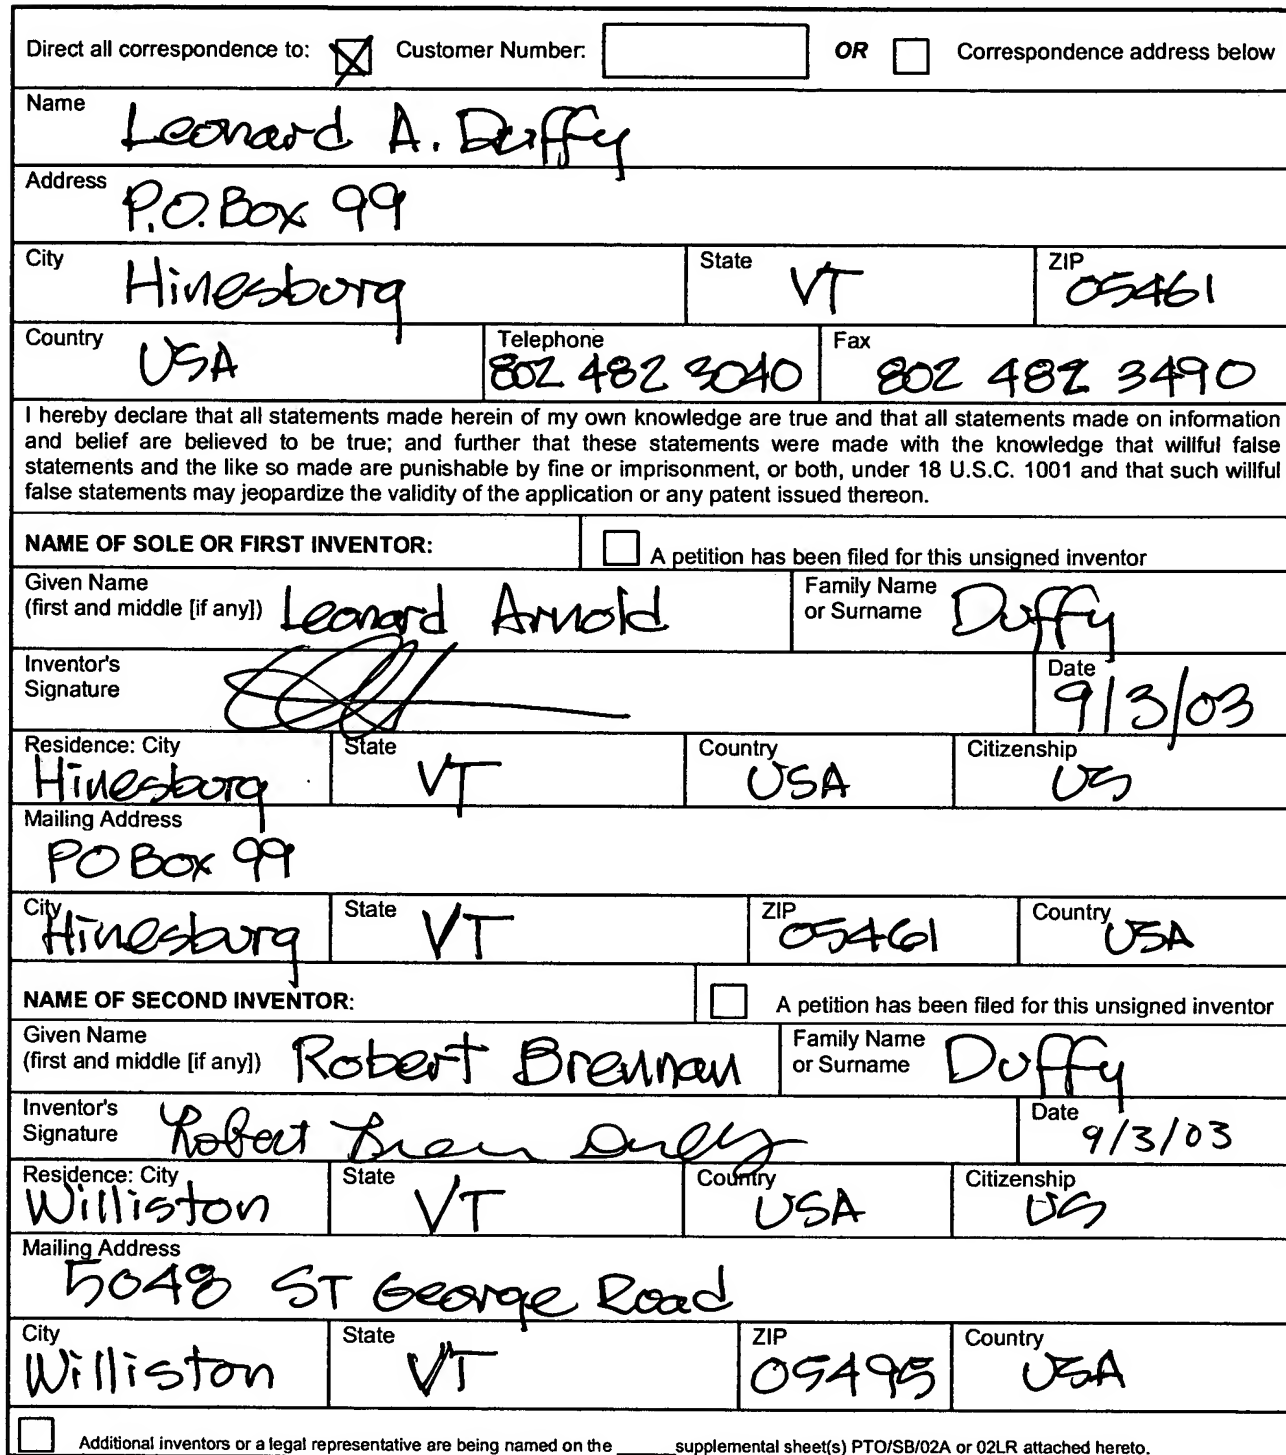 Direct all correspondence to: Customer Number: OR Correspondence address below
Name
Leonard A. Duffy
Address
P.O. Box 99
City State ZIP
Hinesburg VT 05461
Country Telephone Fax
USA 802 482 3040 802 482 3490
I hereby declare that all statements made herein of my own knowledge are true and that all statements made on information
and belief are believed to be true; and further that these statements were made with the knowledge that willful false
statements and the like so made are punishable by fine or imprisonment, or both, under 18 U.S.C. 1001 and that such willful
false statements may jeopardize the validity of the application or any patent issued thereon.
NAME OF SOLE OR FIRST INVENTOR: A petition has been filed for this unsigned inventor
Given Name Family Name
(first and middle [if any]) Leonard Arnold or Surname Duffy
Inventor's Date
Signature 9/3/03
Residence: City State Country Citizenship
Hinesburg VT USA US
Mailing Address
PO Box 99
City State ZIP Country
Hinesburg VT 05461 USA
NAME OF SECOND INVENTOR: A petition has been filed for this unsigned inventor
Given Name Family Name
(first and middle [if any]) Robert Brennan or Surname Duffy
Inventor's Date
Signature Robert Duffy 9/3/03
Residence: City State Country Citizenship
Williston VT USA US
Mailing Address
5048 ST George Road
City State ZIP Country
Williston VT 05495 USA
Additional inventors or a legal representative are being named on the _____supplemental sheet(s) PTO/SB/02A or 02LR attached hereto.